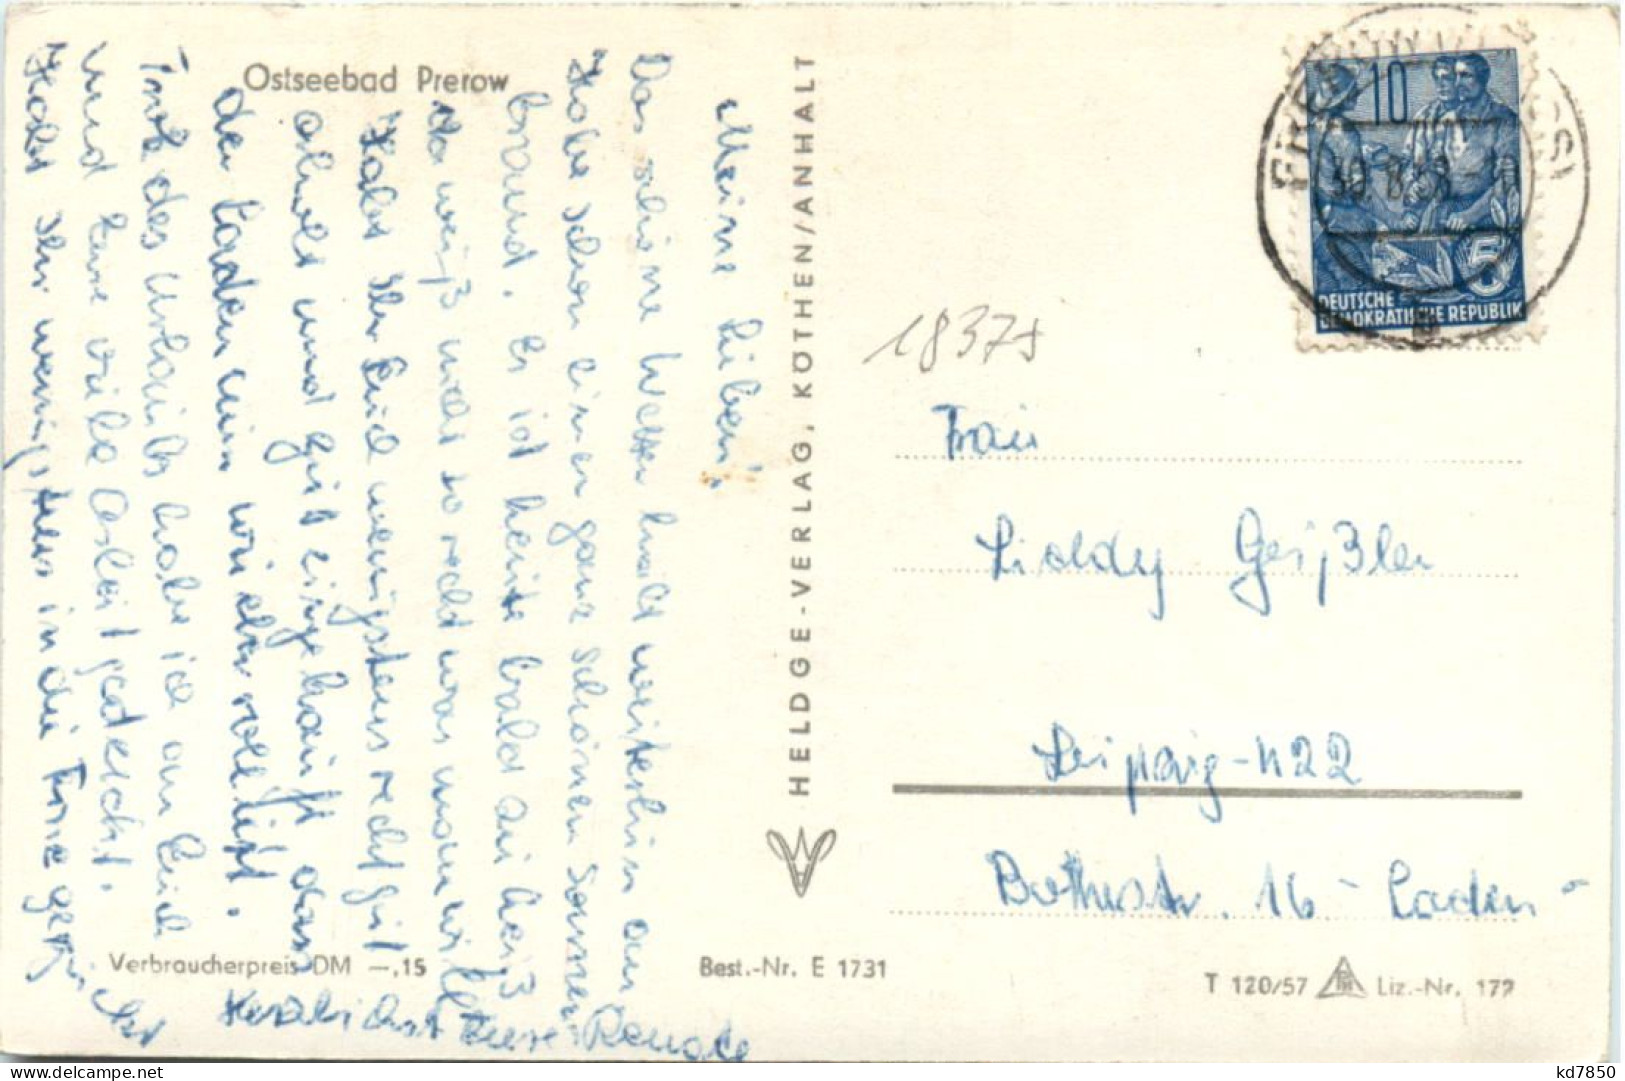 Ostseebad Prerow
Meine Lieben,
Das schöne Wetter hält weiterhin an
Habe schon einen ganz schönen Sonnen-
brand. Es ist heute bald zu heiß
da weiß nicht so recht was man will
Habt Ihr Euch wenigstens recht gut
erholt und gut eingekauft dass
der Laden nun wieder voll ist.
Trotz des Urlaubs habe ich an Euch
und Eure viele Arbeit gedacht.
Habt Ihr wenigstens in die
Herzlichst Eure Renate
HELDGE-VERLAG, KÖTHEN/ANHALT
10
5
DEUTSCHE
DEMOKRATISCHE REPUBLIK
18375
Frau
Liddy Geißler
Leipzig-N22
Bothestr. 16 - Laden -
Verbraucherpreis DM —,15
Best.-Nr. E 1731
T 120/57 Liz.-Nr. 172
kd7850